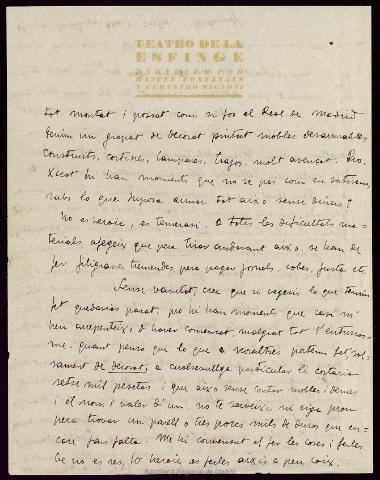 TEATRO DE LA
ESFINGE
DIRIGIDO POR
MANUEL FONTANALS
Y FERNANDO MIGNONI
tot montat i posat com si fos el Real de Madrid
tenim un grapat de decorat pintat mobles desarmables
construits, cortines, lampares, trajos, molt avençat. Pro
Xicot hi han moments que no se pas com en sortirem,
saps lo que suposa armar tot això sense diners?
No es heroic, es temerari. A totes les dificultats ma-
terials afegeix que pera tirar endavant això se han de
fer filigranes tremendes pera pagar jornals, cobes, fusta etc.
Sense vanitat, crec que si vegessis lo que tenim
fet quedarias parat, pro hi han moments que casi m'
hen arrepenteixo d'haver començat, malgrat tot l'entusias-
me, quant penso que lo que a nosaltres portem fet, sol-
sament de decorat, a cualsevullga particular li costaria
setse mil pesetas i que aixo sense contar mobles i demes
i el nom i valer d'un, no te serveixi ni siga prou
pera trovar un parell o tres porcs mils de duros que en-
care fan falta. M'he convensut el fer les coses i ferles
be no es res, lo heroic es ferles aixis a peu coix.
Biblioteca Regional de Madrid